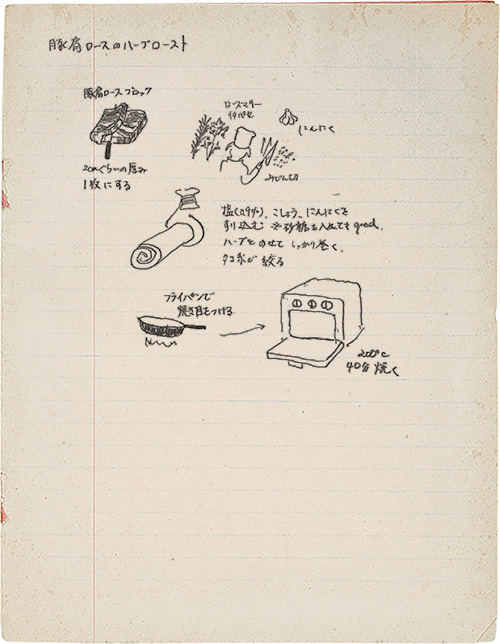 豚肩ロースのハーブロースト
豚肩ロースブロック
2cmぐらいの厚み
1枚にする
ローズマリー
イタパセ
にんにく
みじん切
こしょう、にんにくを
すり込む ※砂糖を入れても good.
ハーブをのせて しっかり巻く.
タコ糸で 絞る
フライパンで
焼き目をつける
200℃
40分 焼く